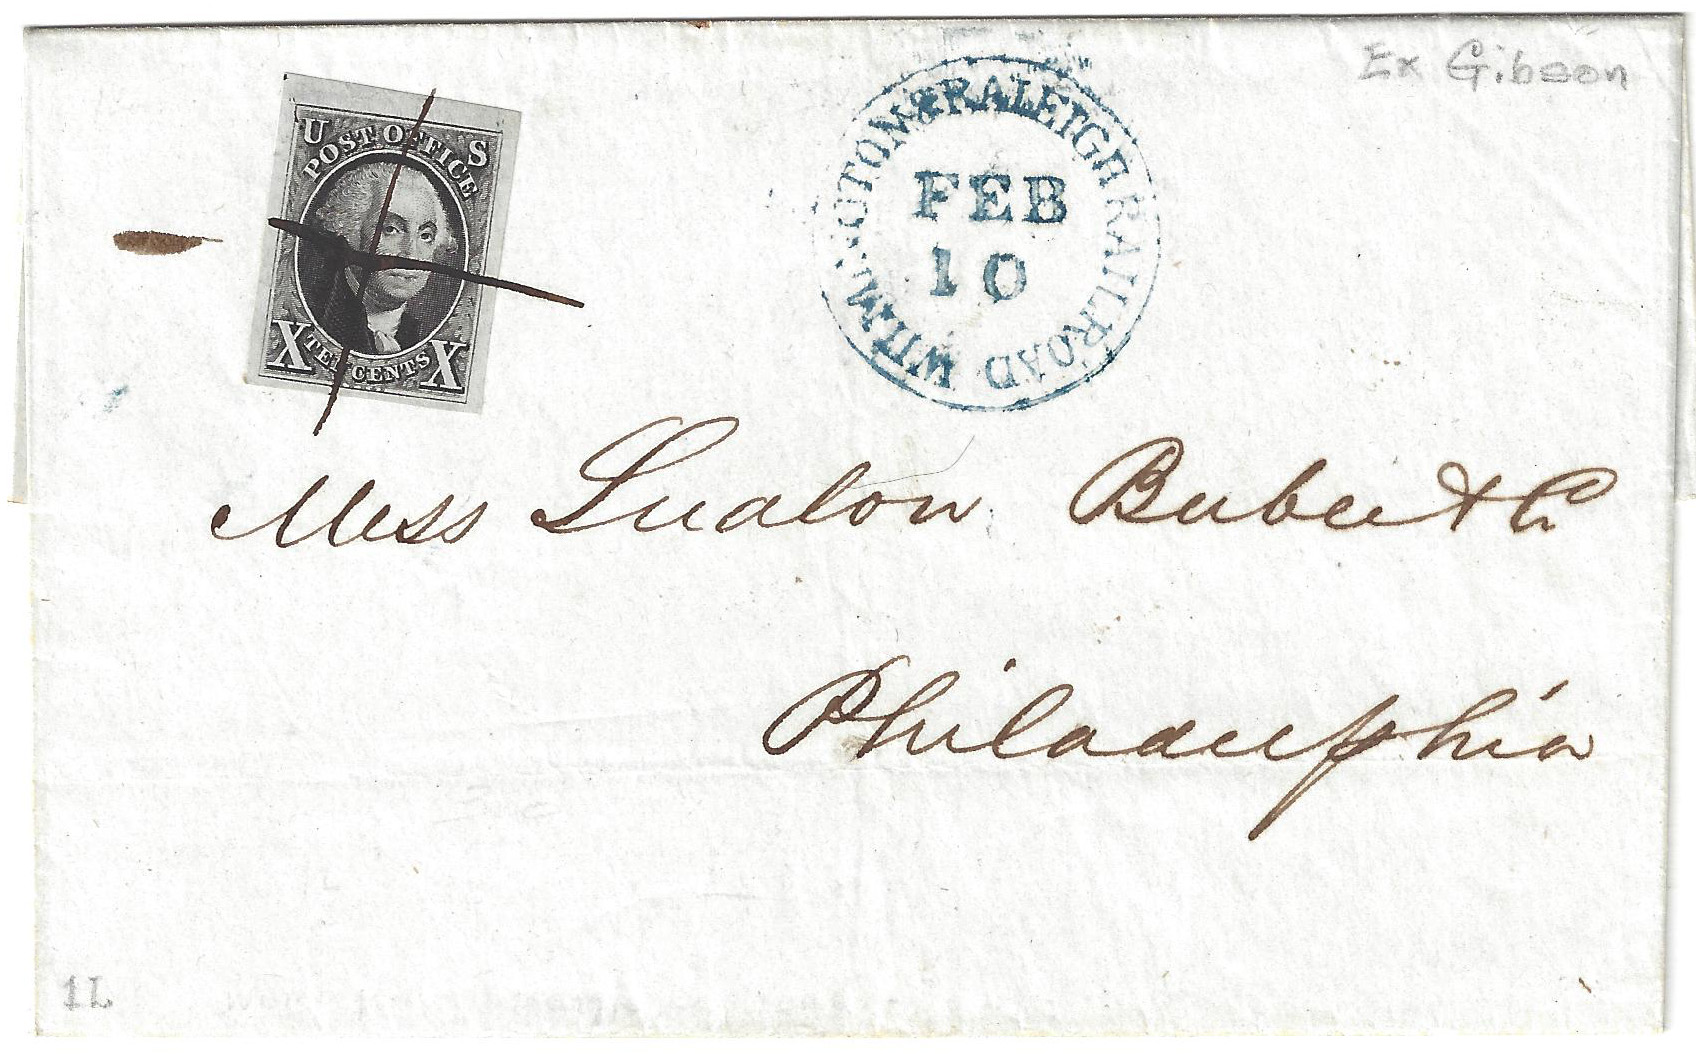 Ex Gibson
U S
POST OFFICE
X TEN CENTS X
WILMINGTON & RALEIGH RAILROAD
FEB
10
Mess Ludlow Beebee & Co
Philadelphia
1L